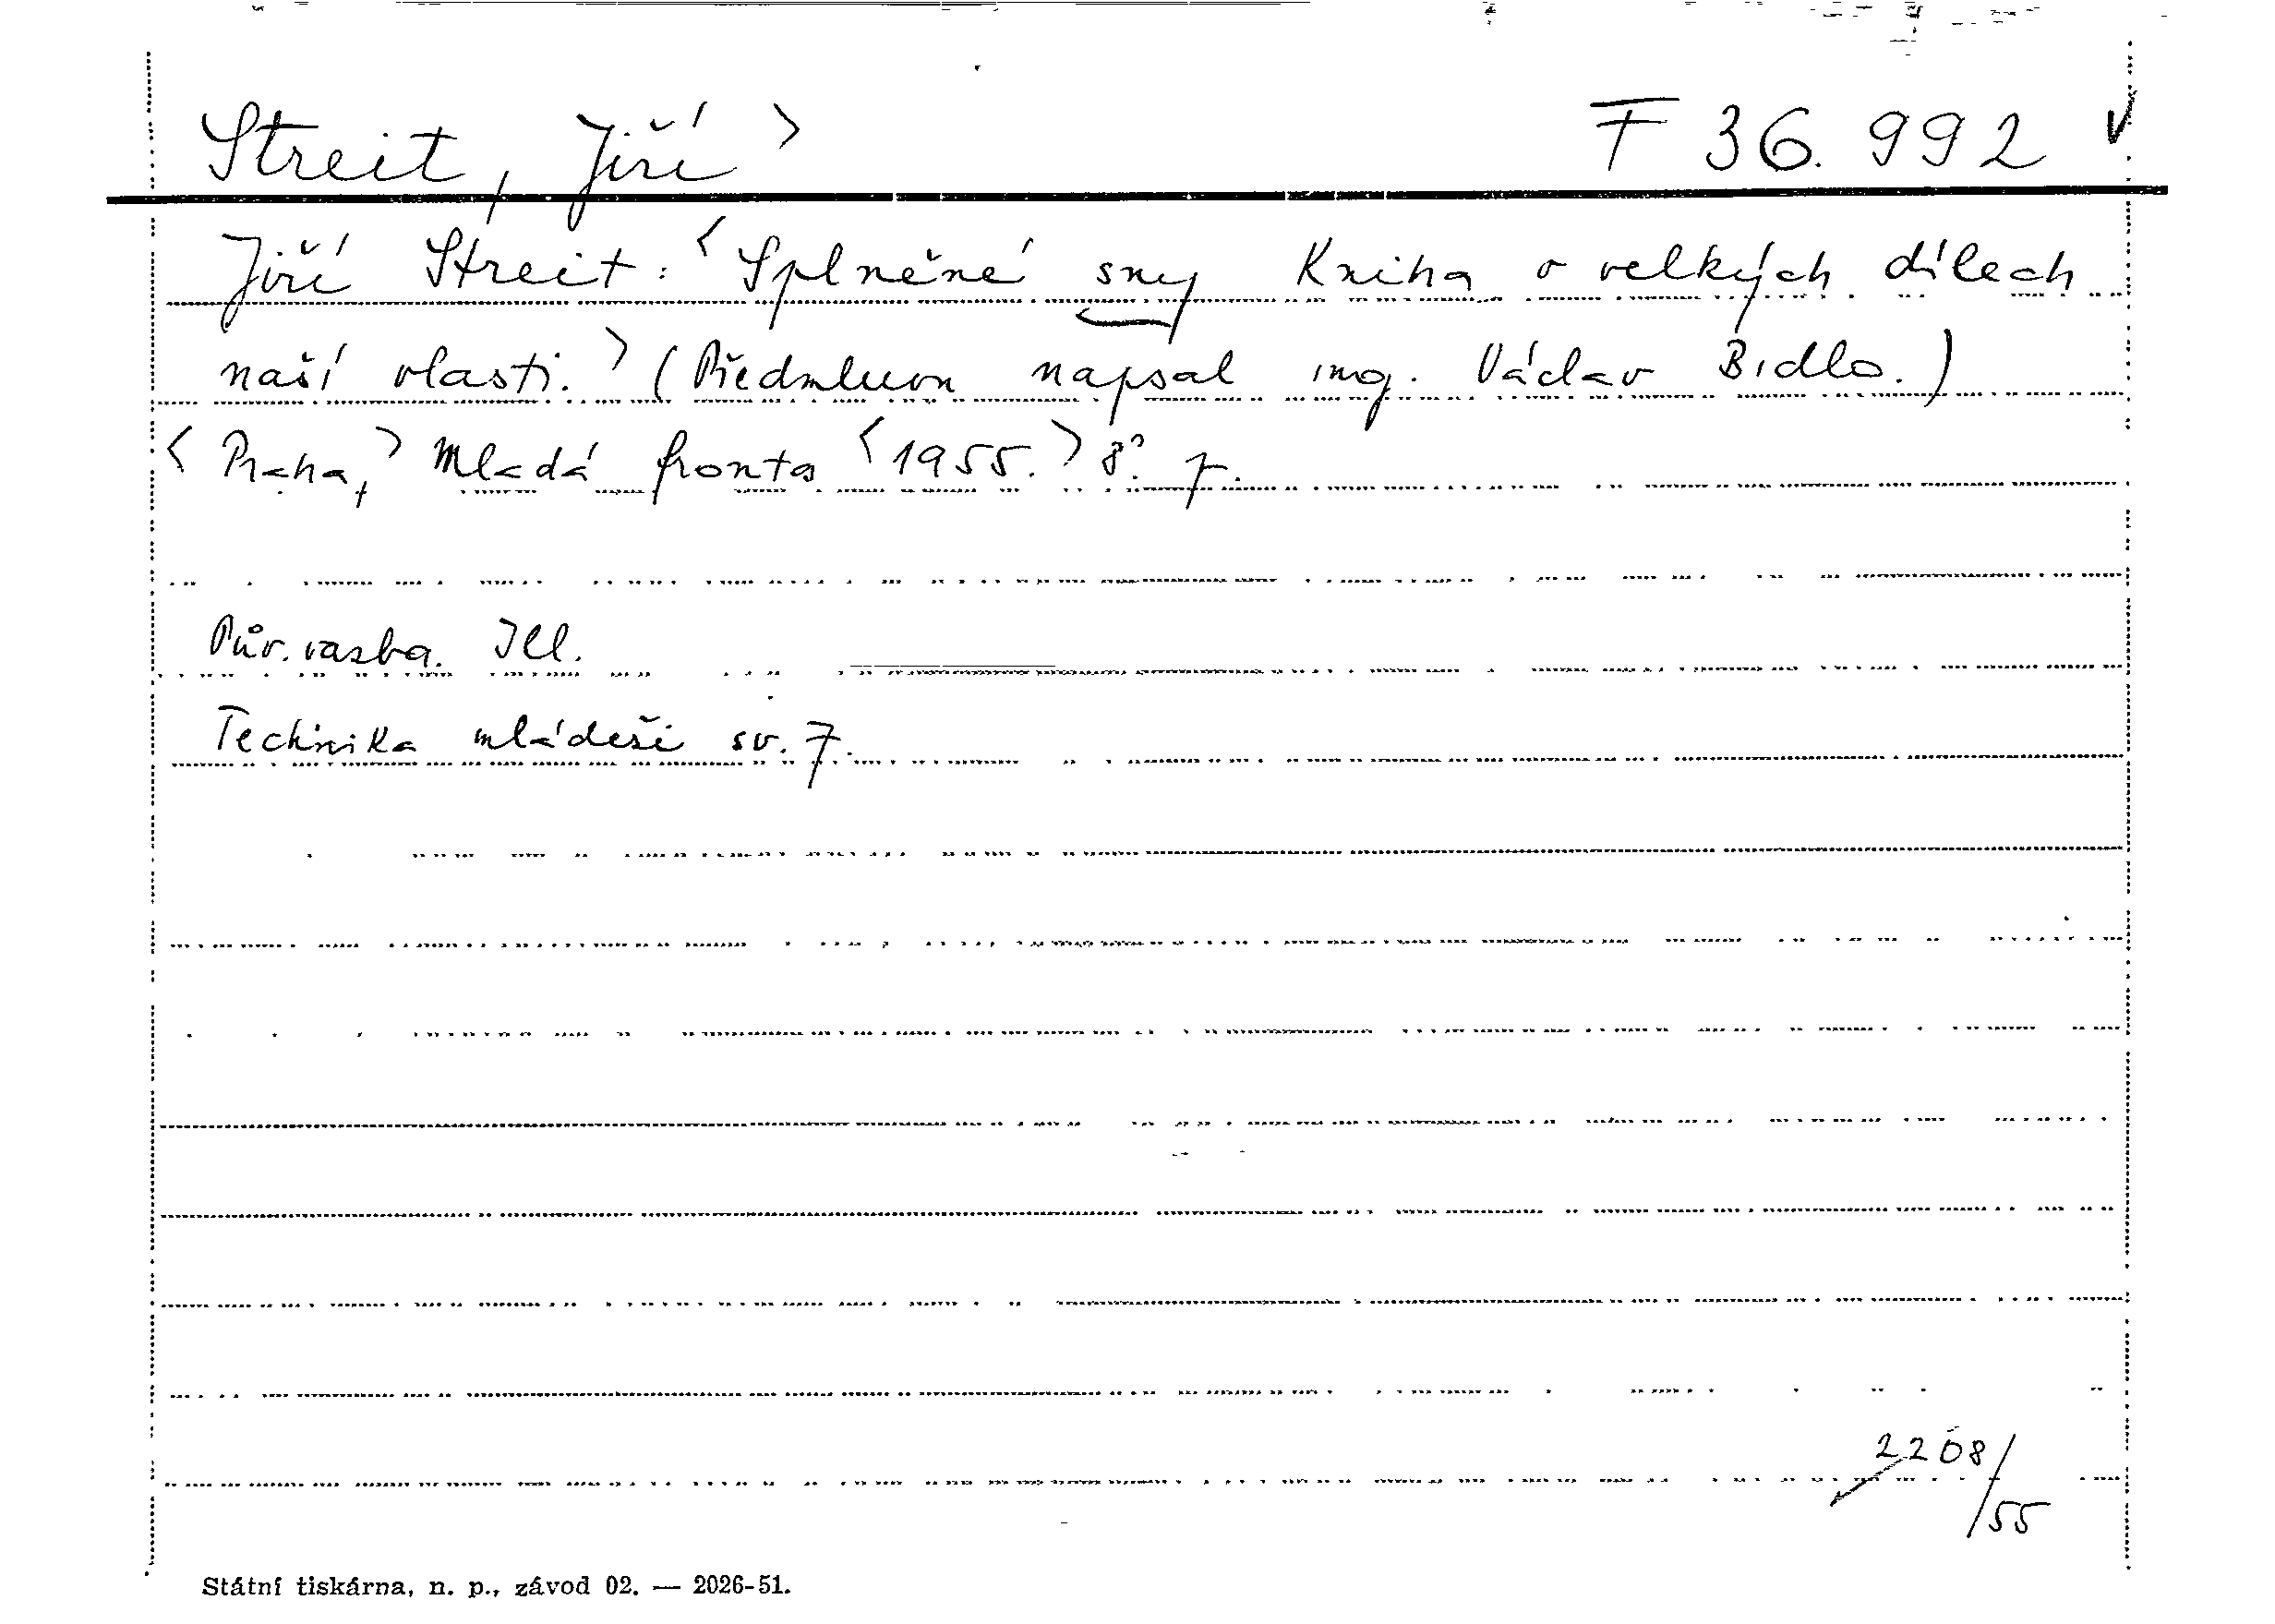 Streit, Jiří > F 36.992
Jiří Streit: <Splněné sny Kniha o velkých dílech
naší vlasti.> (Předmluvu napsal ing. Václav Bidlo.)
<Praha,> Mladá fronta <1955.> 8°.
Pův. vazba. Ill.
Technika mládeži sv. 7.
2208/
/55
Státní tiskárna, n. p., závod 02. — 2026-51.